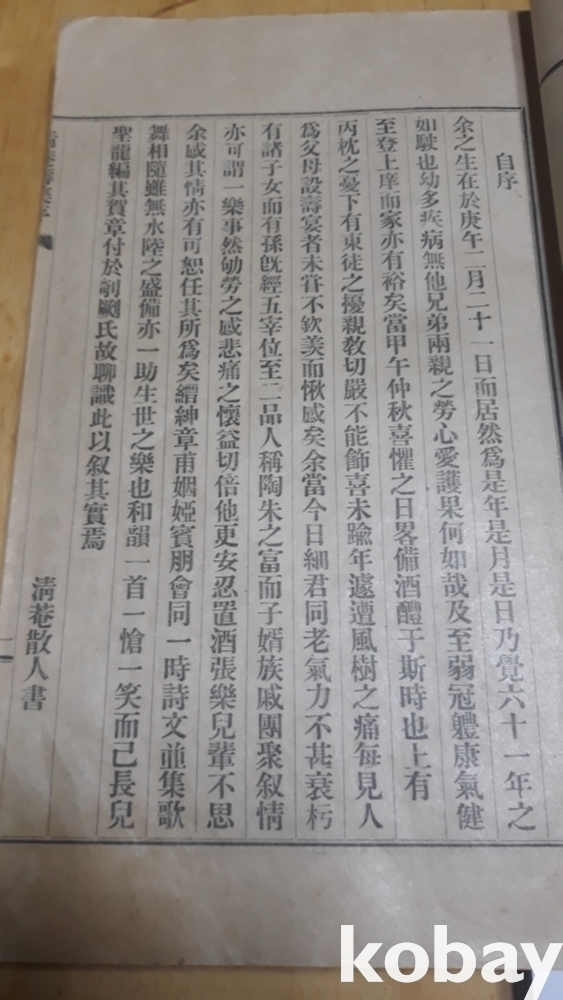 自序
余之生在於庚午二月二十一日而居然爲是年是月是日乃覺六十一年之
如駛也幼多疾病無他兄弟兩親之勞心愛護果何如哉及至弱冠軆康氣健
至登上庠而家亦有裕矣當甲午仲秋喜懼之日畧備酒醴于斯時也上有
丙枕之憂下有東徒之擾親敎切嚴不能飾喜未踰年遽遭風樹之痛每見人
爲父母設壽宴者未甞不欽羨而愀慼矣余當今日細君同老氣力不甚衰朽
有諸子女而有孫旣經五宰位至二品人稱陶朱之富而子婿族戚團聚叙情
亦可謂一樂事然劬勞之感悲痛之懷益切倍他更安忍置酒張樂兒輩不思
余慼其情亦有可恕任其所爲矣縉紳章甫姻婭賓朋會同一時詩文並集歌
舞相隨雖無水陸之盛備亦一助生世之樂也和韻一首一愴一笑而已長兒
聖龍編其賀章付於剞劂氏故聊識此以叙其實焉
淸菴散人書
kobay